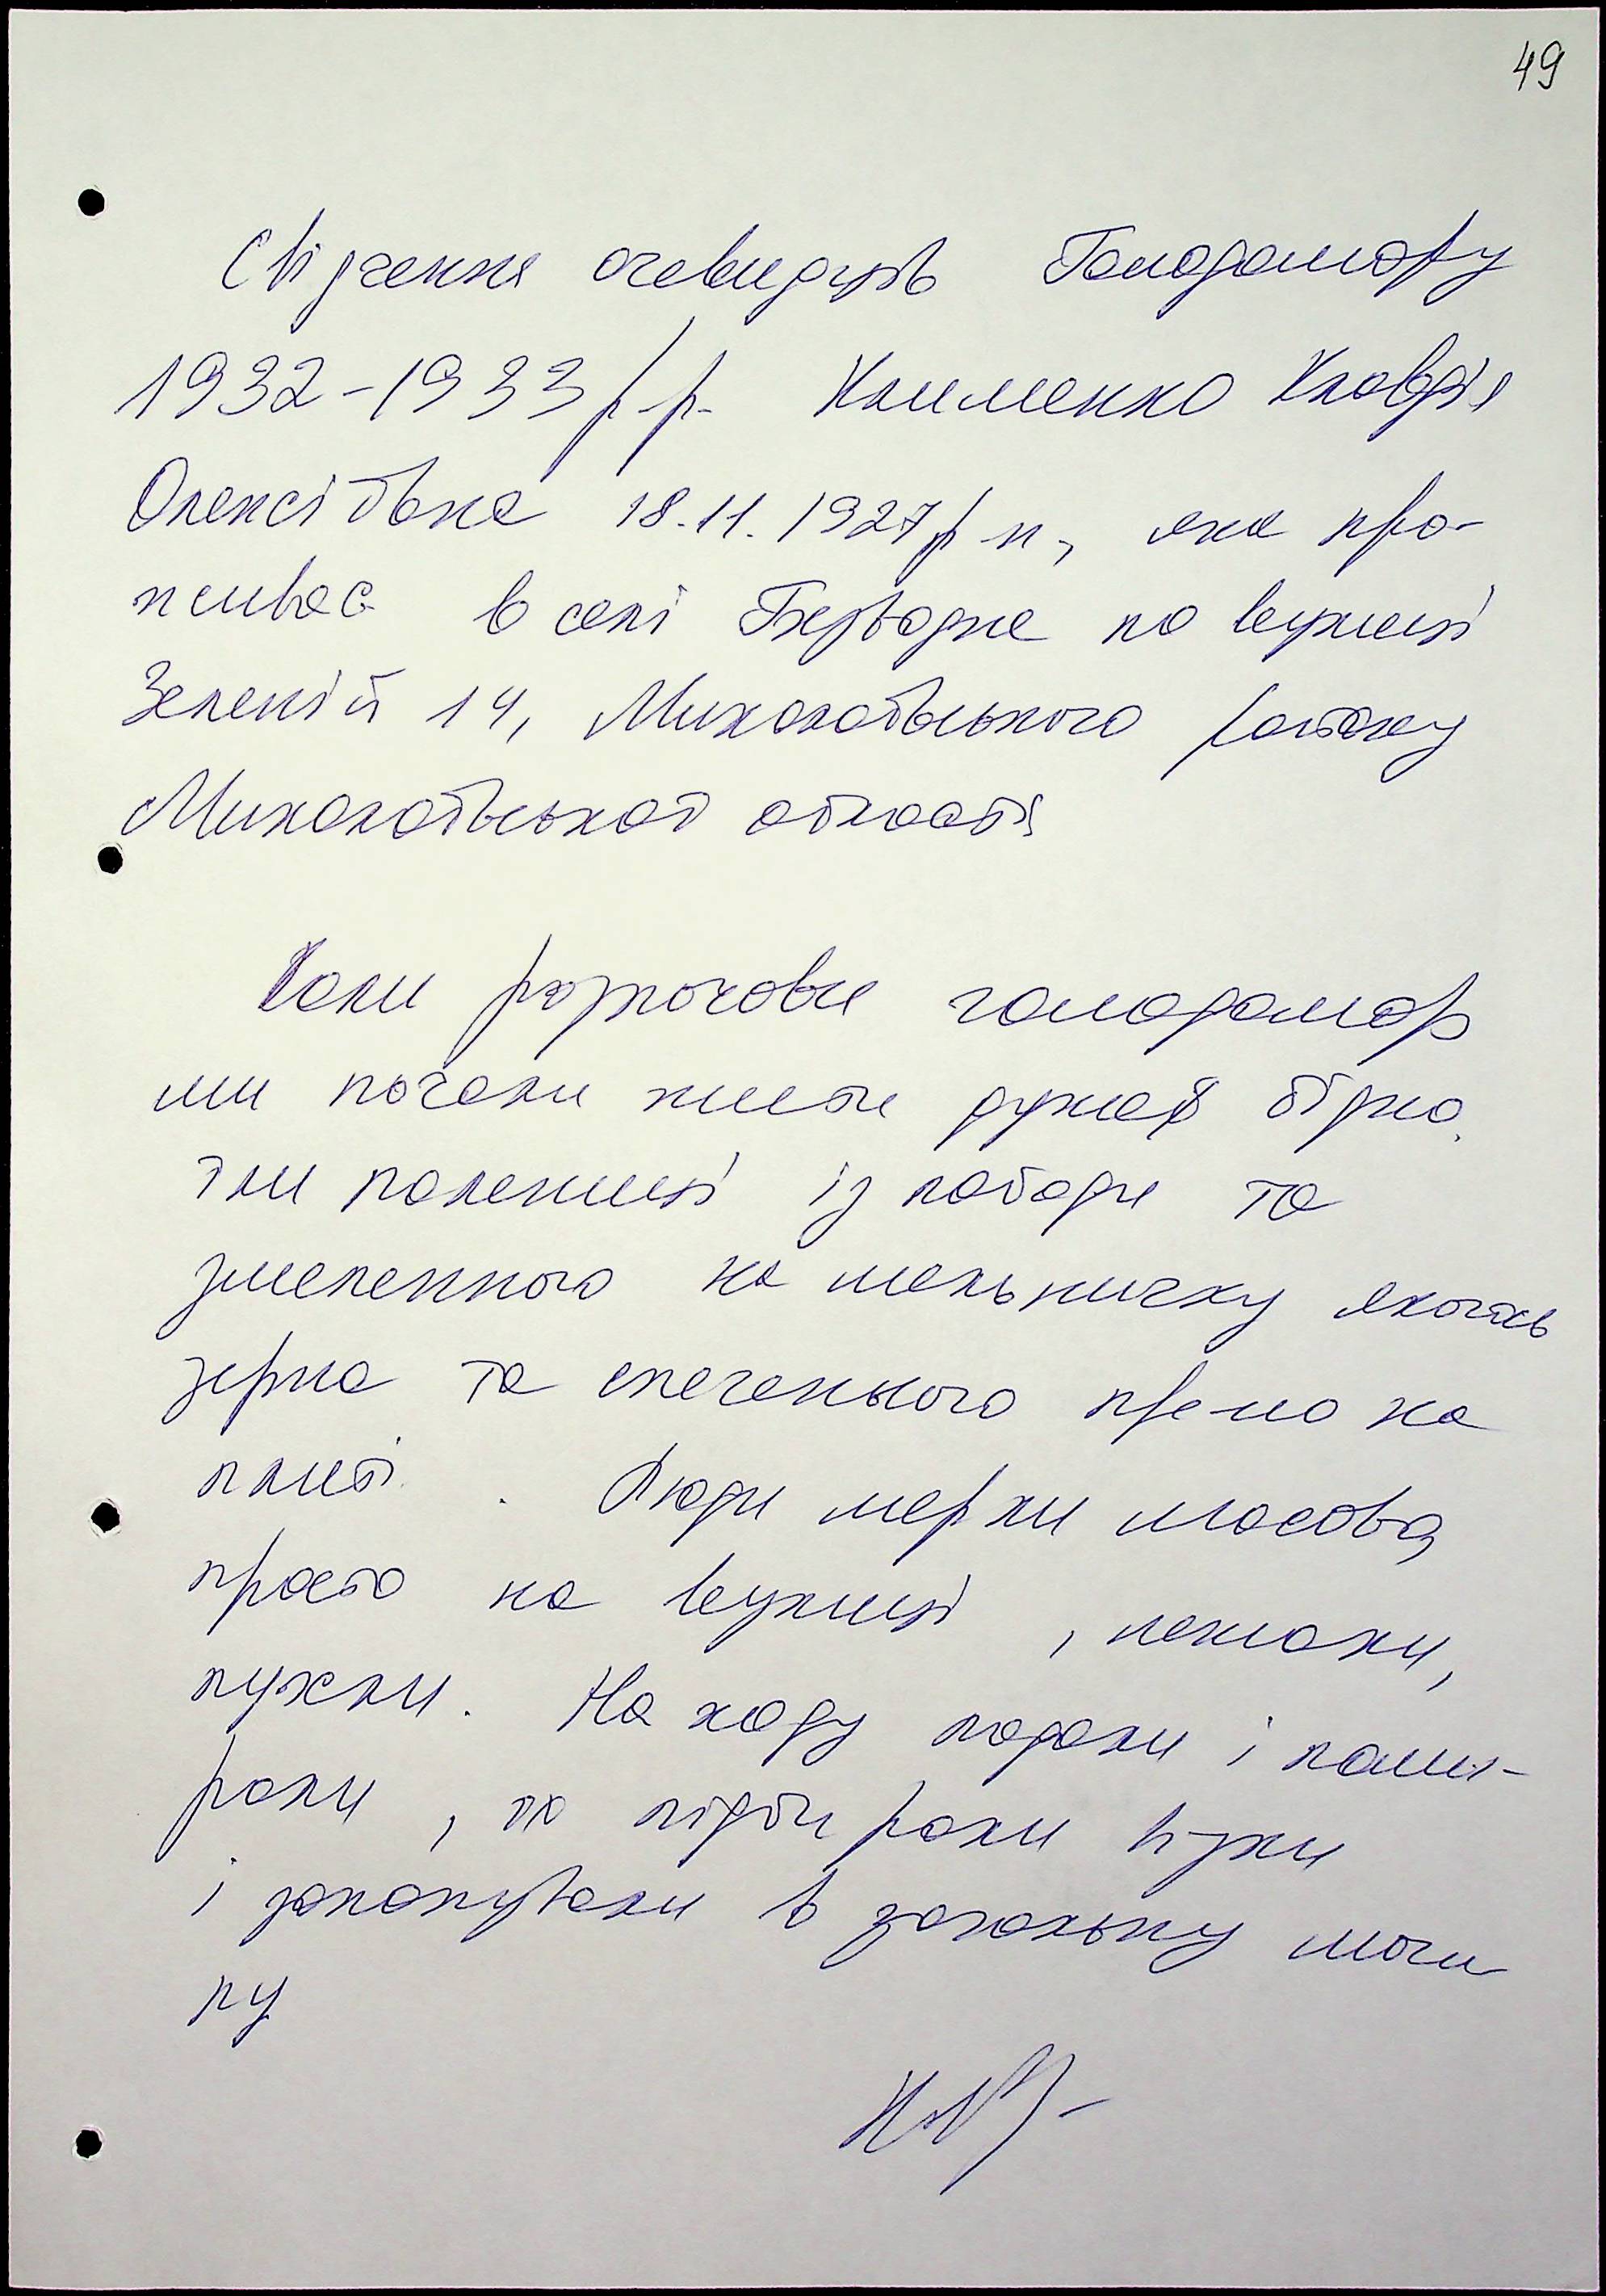 49
Свідчення очевидців Голодомору
1932-1933 р.р. Клименко Клавдія
Олексіївна 18.11.1927 р н, яка про-
живає в селі Безводне по вулиці
Зеленій 14, Миколаївського району
Миколаївської області
Коли розпочався голодомор
ми почали жити дуже бідно.
Їли паляниці із лободи та
змеленного на мельничку якогось
зерна та спеченого прямо на
плиті. Люди мерли масово,
просто на вулиці, лежали,
пухли. На ходу падали і поми-
рали, їх підбирали
і закопували в загальну моги
лу